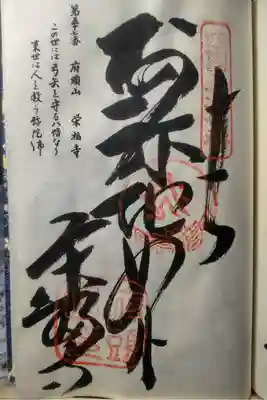 奉納
阿弥陀如来
第五十七番 府頭山 栄福寺
この世には弓矢を守る八幡なり
来世は人を救う弥陀佛
栄福寺